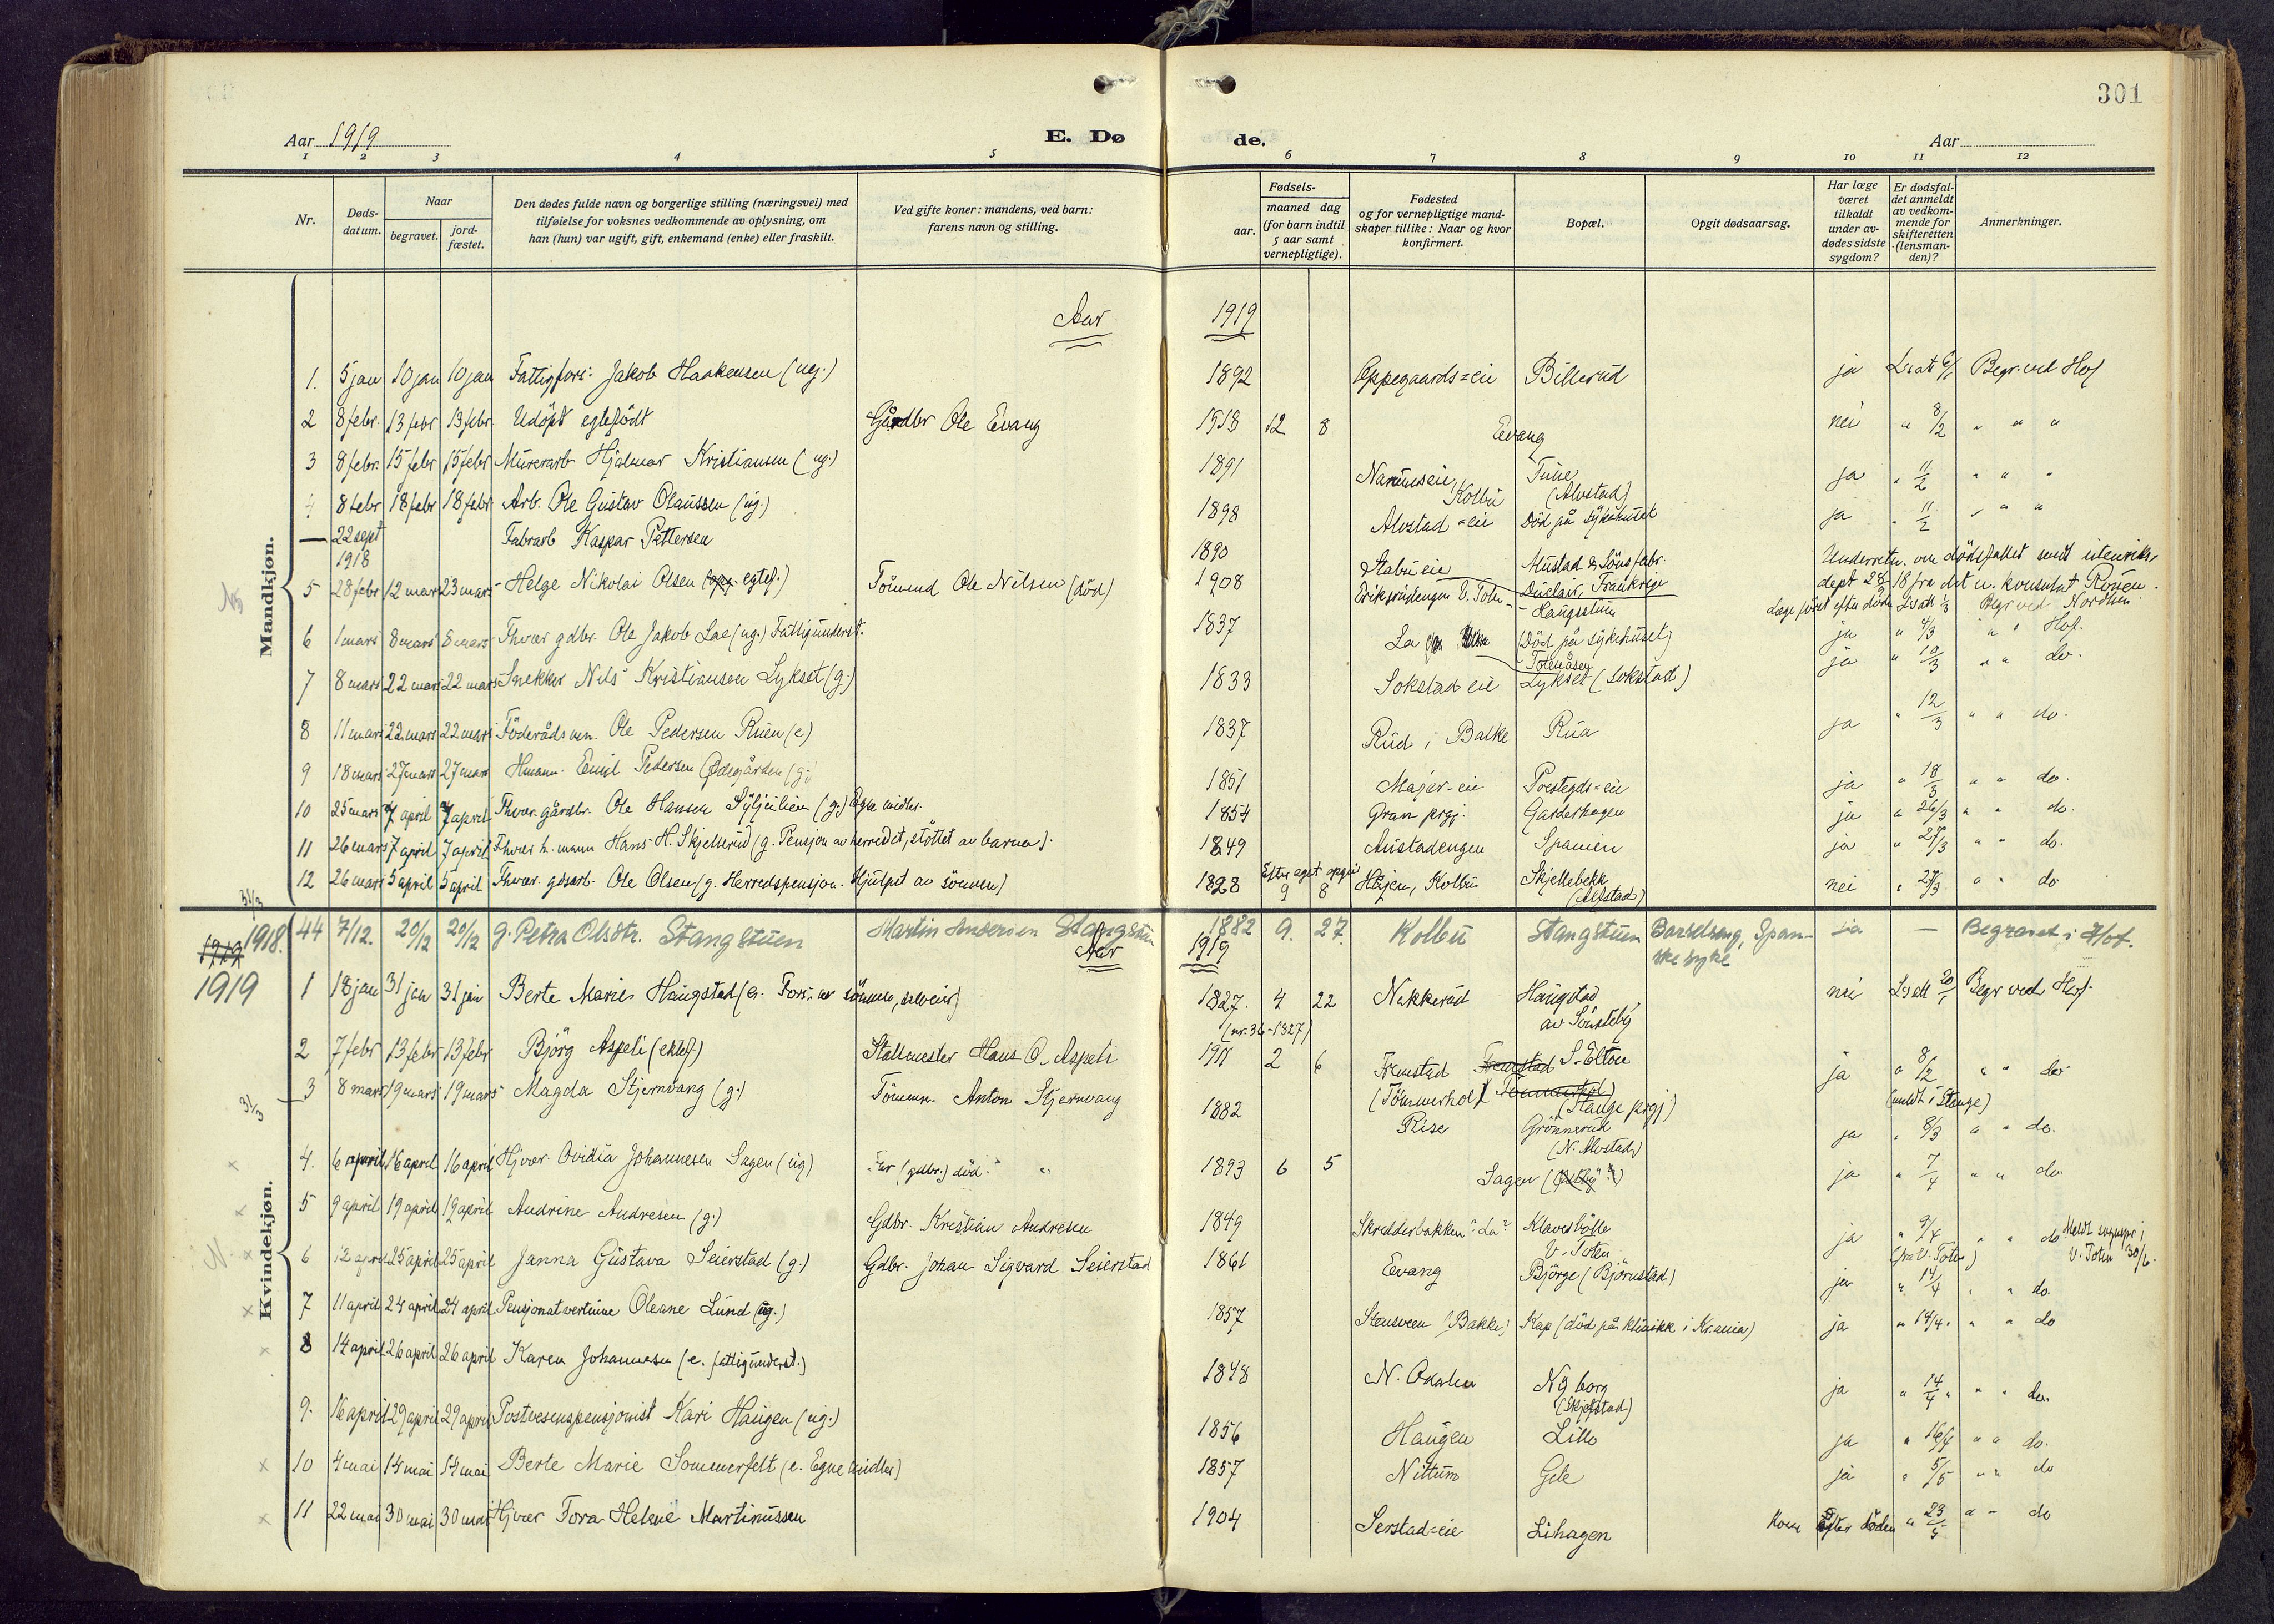 301
Aar 1919
E. Dø
de.
Aar
1 2 3 4 5 6 7 8 9 10 11 12
Nr.
Døds-
datum.
Naar
begravet.
jord-
fæstet.
Den dødes fulde navn og borgerlige stilling (næringsvei) med
tilføielse for voksnes vedkommende av oplysning, om
han (hun) var ugift, gift, enkemand (enke) eller fraskilt.
Ved gifte koner: mandens, ved barn:
farens navn og stilling.
Fødsels-
aar.
maaned dag
(for barn indtil
5 aar samt
vernepligtige).
Fødested
og for vernepligtige mand-
skaper tillike: Naar og hvor
konfirmert.
Bopæl.
Opgit dødsaarsag.
Har læge
været
tilkaldt
under av-
dødes sidste
sygdom?
Er dødsfal-
det anmeldt
av vedkom-
mende for
skifteretten
(lensman-
den)?
Anmerkninger.
Mandkjøn.
Aar 1919
1. 5 jan 10 jan 10 jan Fattigfors. Jakob Haakensen (ug.) 1892 Oppegaards=eie Billerud ja Lsatt 6/1 Begr. ved Hof
2 8 febr. 13 febr 13 febr. Udöpt egtefödt Gårdbr Ole Evang 1918 12 8 Evang nei " 8/2 " " "
3 8 febr. 15 febr 15 febr Murerarb Hjalmar Kristiansen (ug.) 1891 Narumseie, Kolbu Tune (Alvstad) ja " 11/2 " " "
4 8 febr 18 febr 18 febr. Arb. Ole Gustav Olaussen (ug.) 1898 Alvstad=eie Död på sykehuset ja " 11/2 " " "
— 22 sept 1918 Fabrarb Kaspar Pettersen 1890 Stabueie Mustad & Söns fabr. Duclair, Frankrig Underretn. om dödsfallet sendt utenriks-
dept 28/9 18 fra det n. konsulat Rouen.
5 28 febr 12 mars 23 mars Helge Nikolai Olsen (egtef.) Tömmd Ole Nilsen (död) 1908 Eriksrudengen V. Toten Haugsstuen Læge først efter döden Lsatt 1/3 Begr ved Nordlien
6 1 mars 8 mars 8 mars Fhvær gdbr. Ole Jakob Lae (ug.) Fattigunderst. 1837 La (Död på sykehuset) Totenåsen ja " 4/3 " " Hof.
7 8 mars 22 mars 22 mars Snekker Nils Kristiansen Lykset (g.) 1833 Sokstad eie Lykset (Sokstad) ja " 10/3 " " do.
8 11 mars 22 mars 22 mars Föderådsmn. Ole Pedersen Ruen (e) 1837 Rud i Balke Rua ja " 12/3 " " do.
9 18 mars 27 mars 27 mars Hmann. Emil Pedersen Ødegården (g.) 1851 Majer-eie Prestegds=eie ja " 18/3 " " do.
10 25 mars 7 april 7 april Fhvær. gårdbr. Ole Hansen Syljulien (g.) Egne midler. 1854 Gran prgj. Garderhagen ja " 26/3 " " do.
11 26 mars 7 april 7 april Fhvær h.mann Hans H. Skjelserud (g. Pensjon av herredet, stöttet av barna). 1849 Austadengen Spanien ja " 27/3 " " do.
12 26 mars 5 april 5 april Fhvær. gdsarb. Ole Olsen (g. Herredspensjon. Hjulpet av sönnen) 1828 Efter eget opgiv 9 8 Højen, Kolbu Skjellebekk (Alfstad) nei " 27/3 " " do
31/3
1918. 44 7/12. 20/12 20/12 g. Petra Olsdtr. Stangstuen Martin Andersen Stangstuen 1882 9. 27. Kolbu Stangstuen Barselseng, Span-
ske syke ja — Begravet i Hof.
1919
Aar 1919
Kvindekjøn.
1 18 jan 31 jan 31 jan Berte Marie Haugstad (e. Fors. av sönnen, selveier) 1827. 4 22 (nr. 36-1827) Nekkerud Haugstad av Sönsteby nei Lsatt 20/1 Begr ved Hof.
2 7 febr 13 febr 13 febr Björg Aspeli (ektef.) Stallmester Hans O. Aspeli 1911 2 6 Fremstad (Tömmerhol) S. Elton (Stange prgj) ja " 8/2 " " do
(meldt i Stange)
31/3
3 8 mars 19 mars 19 mars Magda Stjernvang (g.) Tömmn. Anton Stjernvang 1882 Rise Grönnerud (N. Alvstad) ja " 8/3 " " do.
4. 6 april 16 april 16 april Hjvær. Ovidia Johannesen Sagen (ug) Far (gdbr.) död. " 1893 6 5 Sagen ja " 7/4 " " do
5 9 april 19 april 19 april Andrine Andresen (g.) Gdbr. Kristian Andresen 1849 Skredderbakken "La" Klavesbölle V. Toten ja " 9/4 (fra V. Toten) " " do Meldt sognepr i
V. Toten 30/6.
6 12 april 25 april 25 april Janna Gustava Seierstad (g.) Gdbr. Johan Sigvard Seierstad 1861 Evang Björge (Björnstad) ja " 14/4 " " do.
7 11 april 24 april 24 april Pensjonatvertinne Oleane Lund (ug.) 1857 Stensveen (Bakke) Kap (död på klinikk i Kr.ania) ja " 14/4. " " do
8 14 april 26 april 26 april Karen Johannesen (e. fattigunderst.) 1848 N. Nyborg (Skjefstad) ja " 14/4 " " " do.
9. 16 april 29 april 29 april Postvesenspensjonist Kari Haugen (ug.) 1856 Haugen Lillo ja " 16/4 " " do.
10 4 mai 14 mai 14 mai Berte Marie Sommerfelt (e. Egne midler) 1857 Nittum Gile ja " 5/5 " " do
11 22 mai 30 mai 30 mai Hjvær Tora Helene Martinussen 1904 Serstad=eie Lihagen Kom efter döden " 23/5 " " do